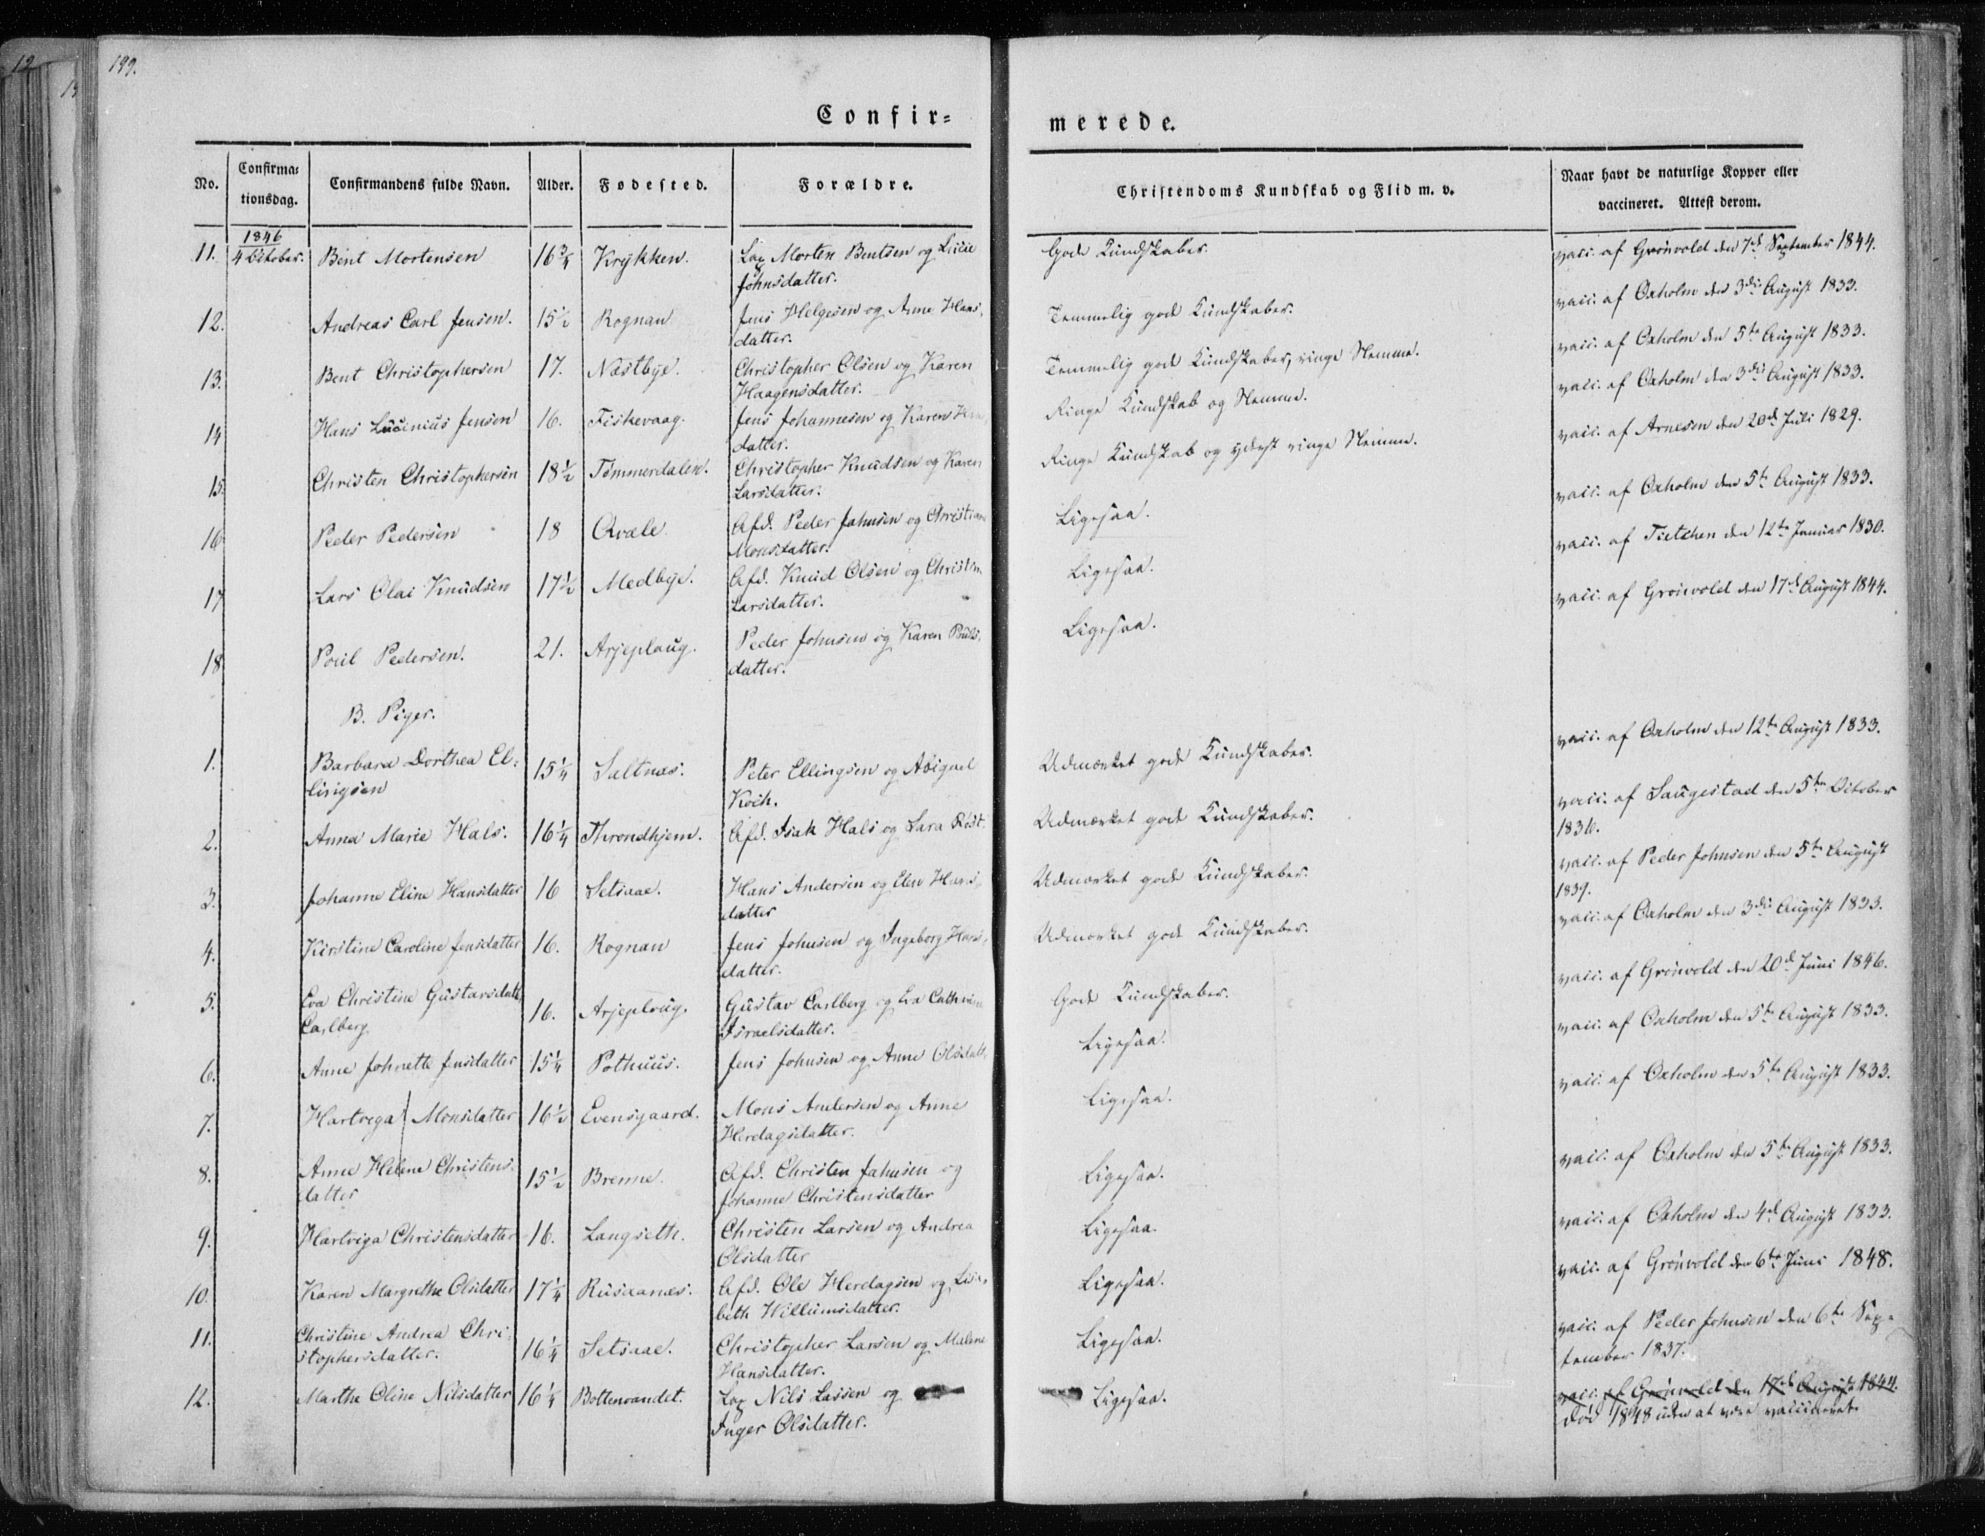 12
13
199.
Confir=
merede.
No. Confirma= tionsdag. Confirmandens fulde Navn. Alder. Fødested. Forældre. Christendoms Kundskab og Flid m. v. Naar havt de naturlige Kopper eller vaccineret. Attest derom.
1846
11. 4 October. Bent Mortensen 16¾ Krykken. Lap Morten Bentsen og Lucie Gode Kundskaber. vacc. af Grønvold den 7de September 1844.
Johnsdatter.
12. Andreas Carl Jensen. 15½ Rognan Jens Helgesen og Anne Hans- Temmelig gode Kundskaber. vacc. af Oxholm den 3die August 1833.
datter.
13. Bent Christophersen 17. Næstbye. Christopher Olsen og Karen Temmelig gode Kundskaber, ringe Nemme. vacc. af Oxholm den 5te August 1833.
Haagensdatter.
14 Hans Lucinius Jensen 16. Fiskevaag. Jens Johannesen og Karen Ringe Kundskab og Nemme. vacc. af Oxholm den 3die August 1833.
datter.
15. Christen Christophersen 18½ Tømmerdalen. Christopher Knudsen og Karen Ringe Kundskab og yderst ringe Nemme. vacc. af Arnesen den 20de Juli 1829.
Larsdatter.
16 Peder Pedersen 18 Qvale Afd. Peder Johnsen og Christiane Ligesaa. vacc. af Oxholm den 5te August 1833.
Monsdatter.
17 Lars Olai Knudsen 17½ Medbye. Afd. Knud Olsen og Christen Ligesaa. vacc. af Tietchen den 12te Januar 1830.
Larsdatter.
18 Poul Pedersen. 21. Arjeplaug. Peder Johnsen og Karen Pouls- Ligesaa. vacc. af Grønvold den 17de August 1844.
datter.
B. Piger.
1. Barbara Dorthea El- 15¼ Saltnæs. Peter Ellingsen og Abigael Udmærket gode Kundskaber. vacc. af Oxholm den 12te August 1833.
lingsen Koch.
2. Anna Marie Hals. 16¼ Throndhjem. Afd. Isak Hals og Sara Rist. Udmærket gode Kundskaber. vacc. af Saugestad den 5te October
1836.
3. Johanne Eline Hansdatter 16 Setsaae. Hans Andersen og Elen Hans- Udmærket gode Kundskaber. vacc. af Peder Johnsen den 5te August
datter 1839.
4. Kirstine Caroline Jensdatter 16. Rognan Jens Johnsen og Ingeborg Hans- Udmærket gode Kundskaber. vacc. af Oxholm den 3die August 1833.
datter.
5. Eva Christine Gustavsdatter 16. Arjeplaug. Gustav Carlberg og Eva Cathrine Gode Kundskaber. vacc. af Grønvold den 20de Juni 1846.
Carlberg. Israelsdatter.
6. Anne Johnette Jensdatter 15¼ Pothuus. Jens Johnsen og Anne Olsdatt. Ligesaa. vacc. af Oxholm den 5te August 1833.
7. Hartviga Monsdatter 16½ Evensgaard. Mons Andersen og Anne Ligesaa. vacc. af Oxholm den 5te August 1833.
Herdagsdatter.
8. Anne Helene Christens- 15½ Brenne. Afd. Christen Johnsen og Ligesaa. vacc. af Oxholm den 5te August 1833.
datter Johanne Christensdatter
9. Hartviga Christensdatter 16. Langseth. Christen Larsen og Andrea Ligesaa. vacc. af Oxholm den 4de August 1833.
Olsdatter
10. Karen Margrethe Olsdatter 17¼ Rusaanæs. Afd. Ole Herdagsen og Lisa- Ligesaa. vacc. af Grønvold den 6te Juni 1848.
beth Willumsdatter.
11. Christine Andrea Chri- 16¼ Setsaae. Christopher Larsen og Malene Ligesaa. vacc. af Peder Johnsen den 6te Sep-
stophersdatter. Hansdatter. tember 1837.
12. Marthe Oline Nilsdatter 16¼ Bottenvandet. Lap Nils Lassen og Ligesaa. vacc. af Grønvold den 17de August 1844.
Inger Olsdatter. død 1848 uden at være vaccineret.